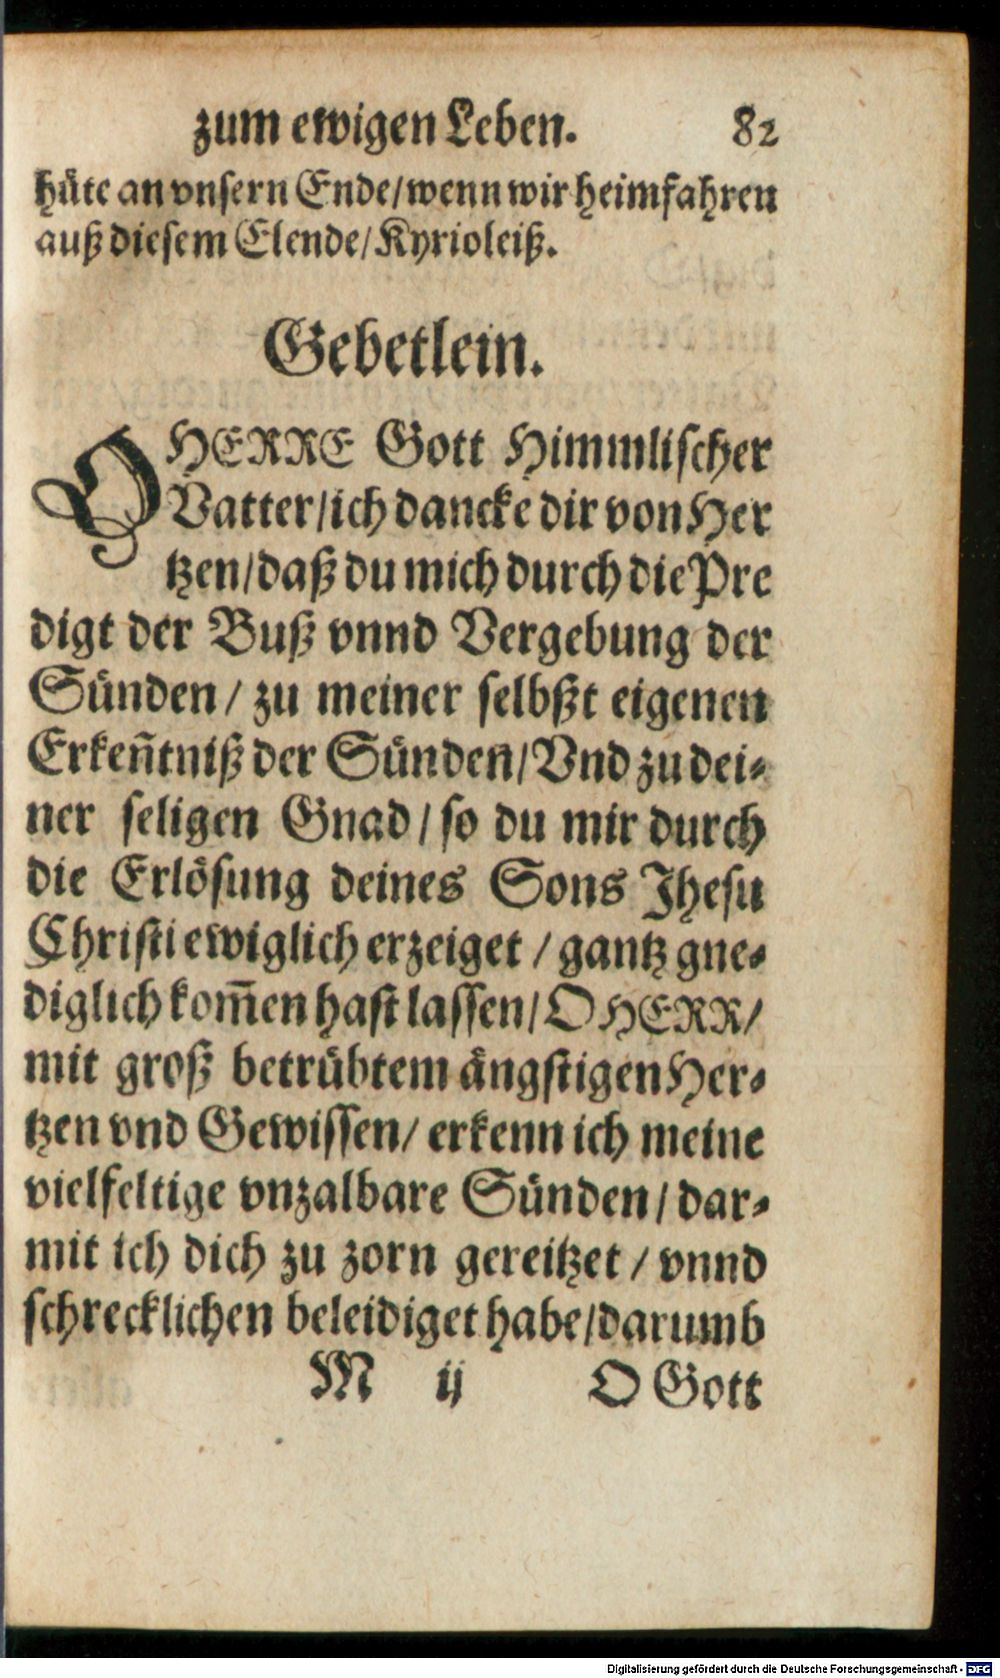 zum ewigen Leben. 82
hüte an vnsern Ende/wenn wir heimfahren
auß diesem Elende/Kyrioleiß.
Gebetlein.
O HERRE Gott Himmlischer
Vatter/ich dancke dir von Her
tzen/daß du mich durch die Pre
digt der Buß vnnd Vergebung der
Sünden/ zu meiner selbßt eigenen
Erkeñtniß der Sünden/Vnd zu dei-
ner seligen Gnad/ so du mir durch
die Erlösung deines Sons Jhesu
Christi ewiglich erzeiget / gantz gne-
diglich kom̃en hast lassen/O HERR/
mit groß betrübtem ängstigen Her-
tzen vnd Gewissen/ erkenn ich meine
vielfeltige vnzalbare Sünden/ dar-
mit ich dich zu zorn gereitzet / vnnd
schrecklichen beleidiget habe/darumb
M ij O Gott
Digitalisierung gefördert durch die Deutsche Forschungsgemeinschaft - DFG